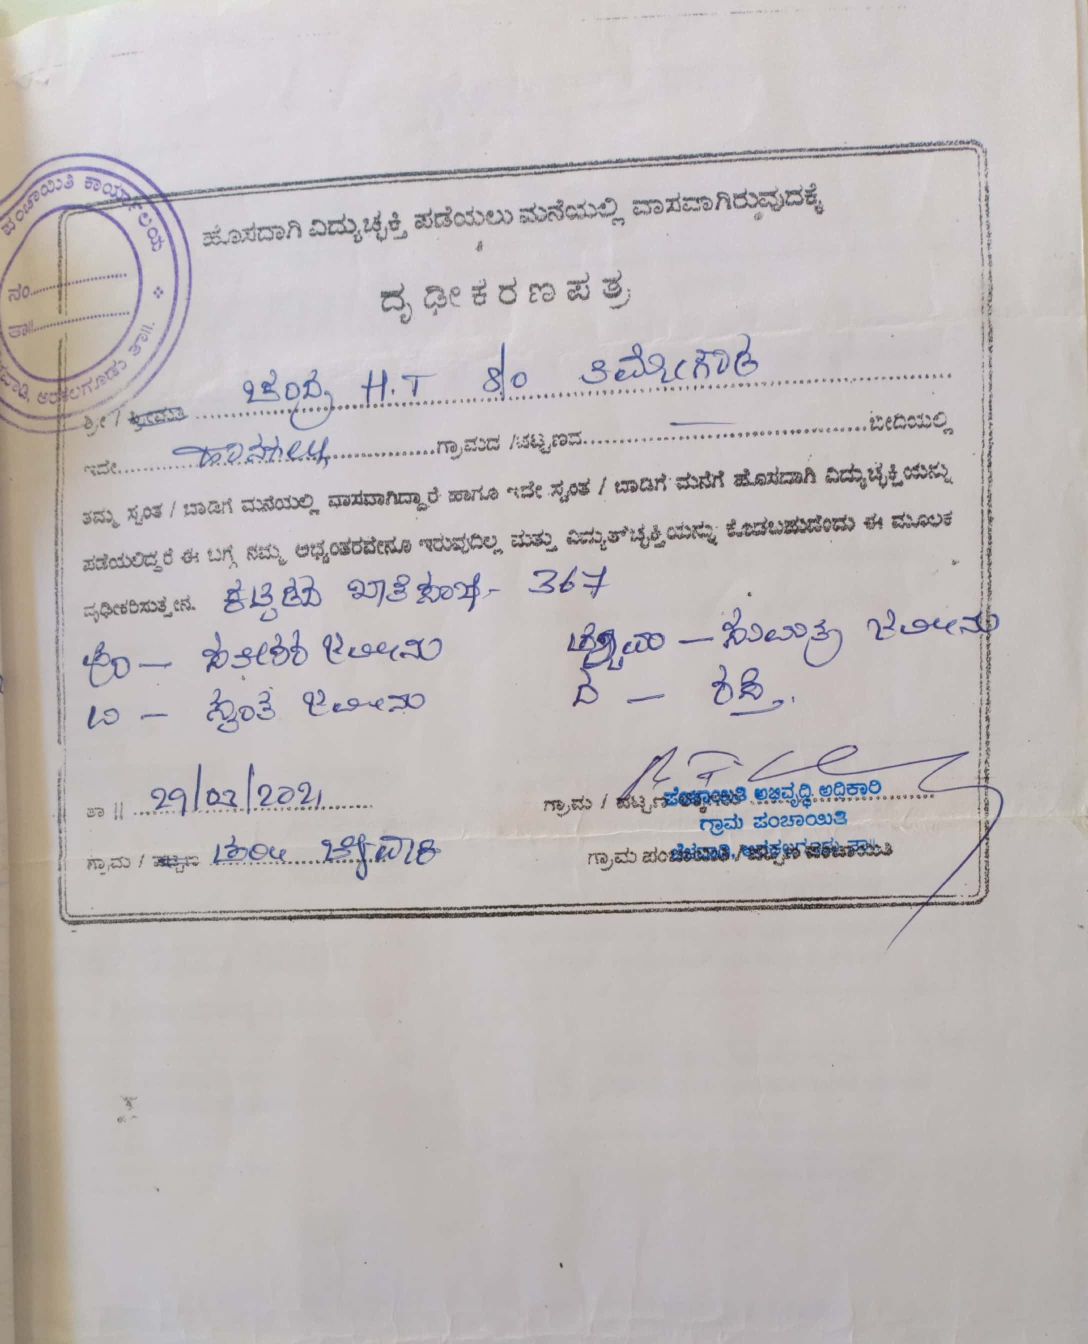 ಪಂಚಾಯಿತಿ ಕಾರ್ಯಾಲಯ
ನಂ
ತಾ||
ಅರಕಲಗೂಡು ತಾ||.
ಹೊಸದಾಗಿ ವಿದ್ಯುಚ್ಛಕ್ತಿ ಪಡೆಯಲು ಮನೆಯಲ್ಲಿ ವಾಸವಾಗಿರುವುದಕ್ಕೆ
ದೃಢೀಕರಣಪತ್ರ
ಶ್ರೀ / ಶ್ರೀಮತಿ ಚಂದ್ರ H.T S/o ತಿಮ್ಮೇಗೌಡ
ಇದೇ ಗ್ರಾಮದ / ಪಟ್ಟಣದ — ಬೀದಿಯಲ್ಲಿ
ತಮ್ಮ ಸ್ವಂತ / ಬಾಡಿಗೆ ಮನೆಯಲ್ಲಿ ವಾಸವಾಗಿದ್ದಾರೆ ಹಾಗೂ ಇದೇ ಸ್ವಂತ / ಬಾಡಿಗೆ ಮನೆಗೆ ಹೊಸದಾಗಿ ವಿದ್ಯುಚ್ಛಕ್ತಿಯನ್ನು
ಪಡೆಯಲಿದ್ದರೆ ಈ ಬಗ್ಗೆ ನಮ್ಮ ಅಭ್ಯಂತರವೇನೂ ಇರುವುದಿಲ್ಲ ಮತ್ತು ವಿದ್ಯುತ್‌ಚ್ಛಕ್ತಿಯನ್ನು ಕೊಡಬಹುದೆಂದು ಈ ಮೂಲಕ
ದೃಢೀಕರಿಸುತ್ತೇನೆ. 367
ಪೂ — ಜಮೀನು
ಪಶ್ಚಿಮ — ಸುಮಿತ್ರ ಜಮೀನು
ಉ — ಸ್ವಂತ ಜಮೀನು
ದ — ರಸ್ತೆ.
ತಾ || 29/03/2021
ಗ್ರಾಮ / ಪಟ್ಟಣ
ಪಂಚಾಯಿತಿ ಅಭಿವೃದ್ಧಿ ಅಧಿಕಾರಿ
ಗ್ರಾಮ ಪಂಚಾಯಿತಿ
ಗ್ರಾಮ / ಪಟ್ಟಣ
ಗ್ರಾಮ ಪಂಚಾಯಿತಿ / ಪಟ್ಟಣ ಪಂಚಾಯಿತಿ